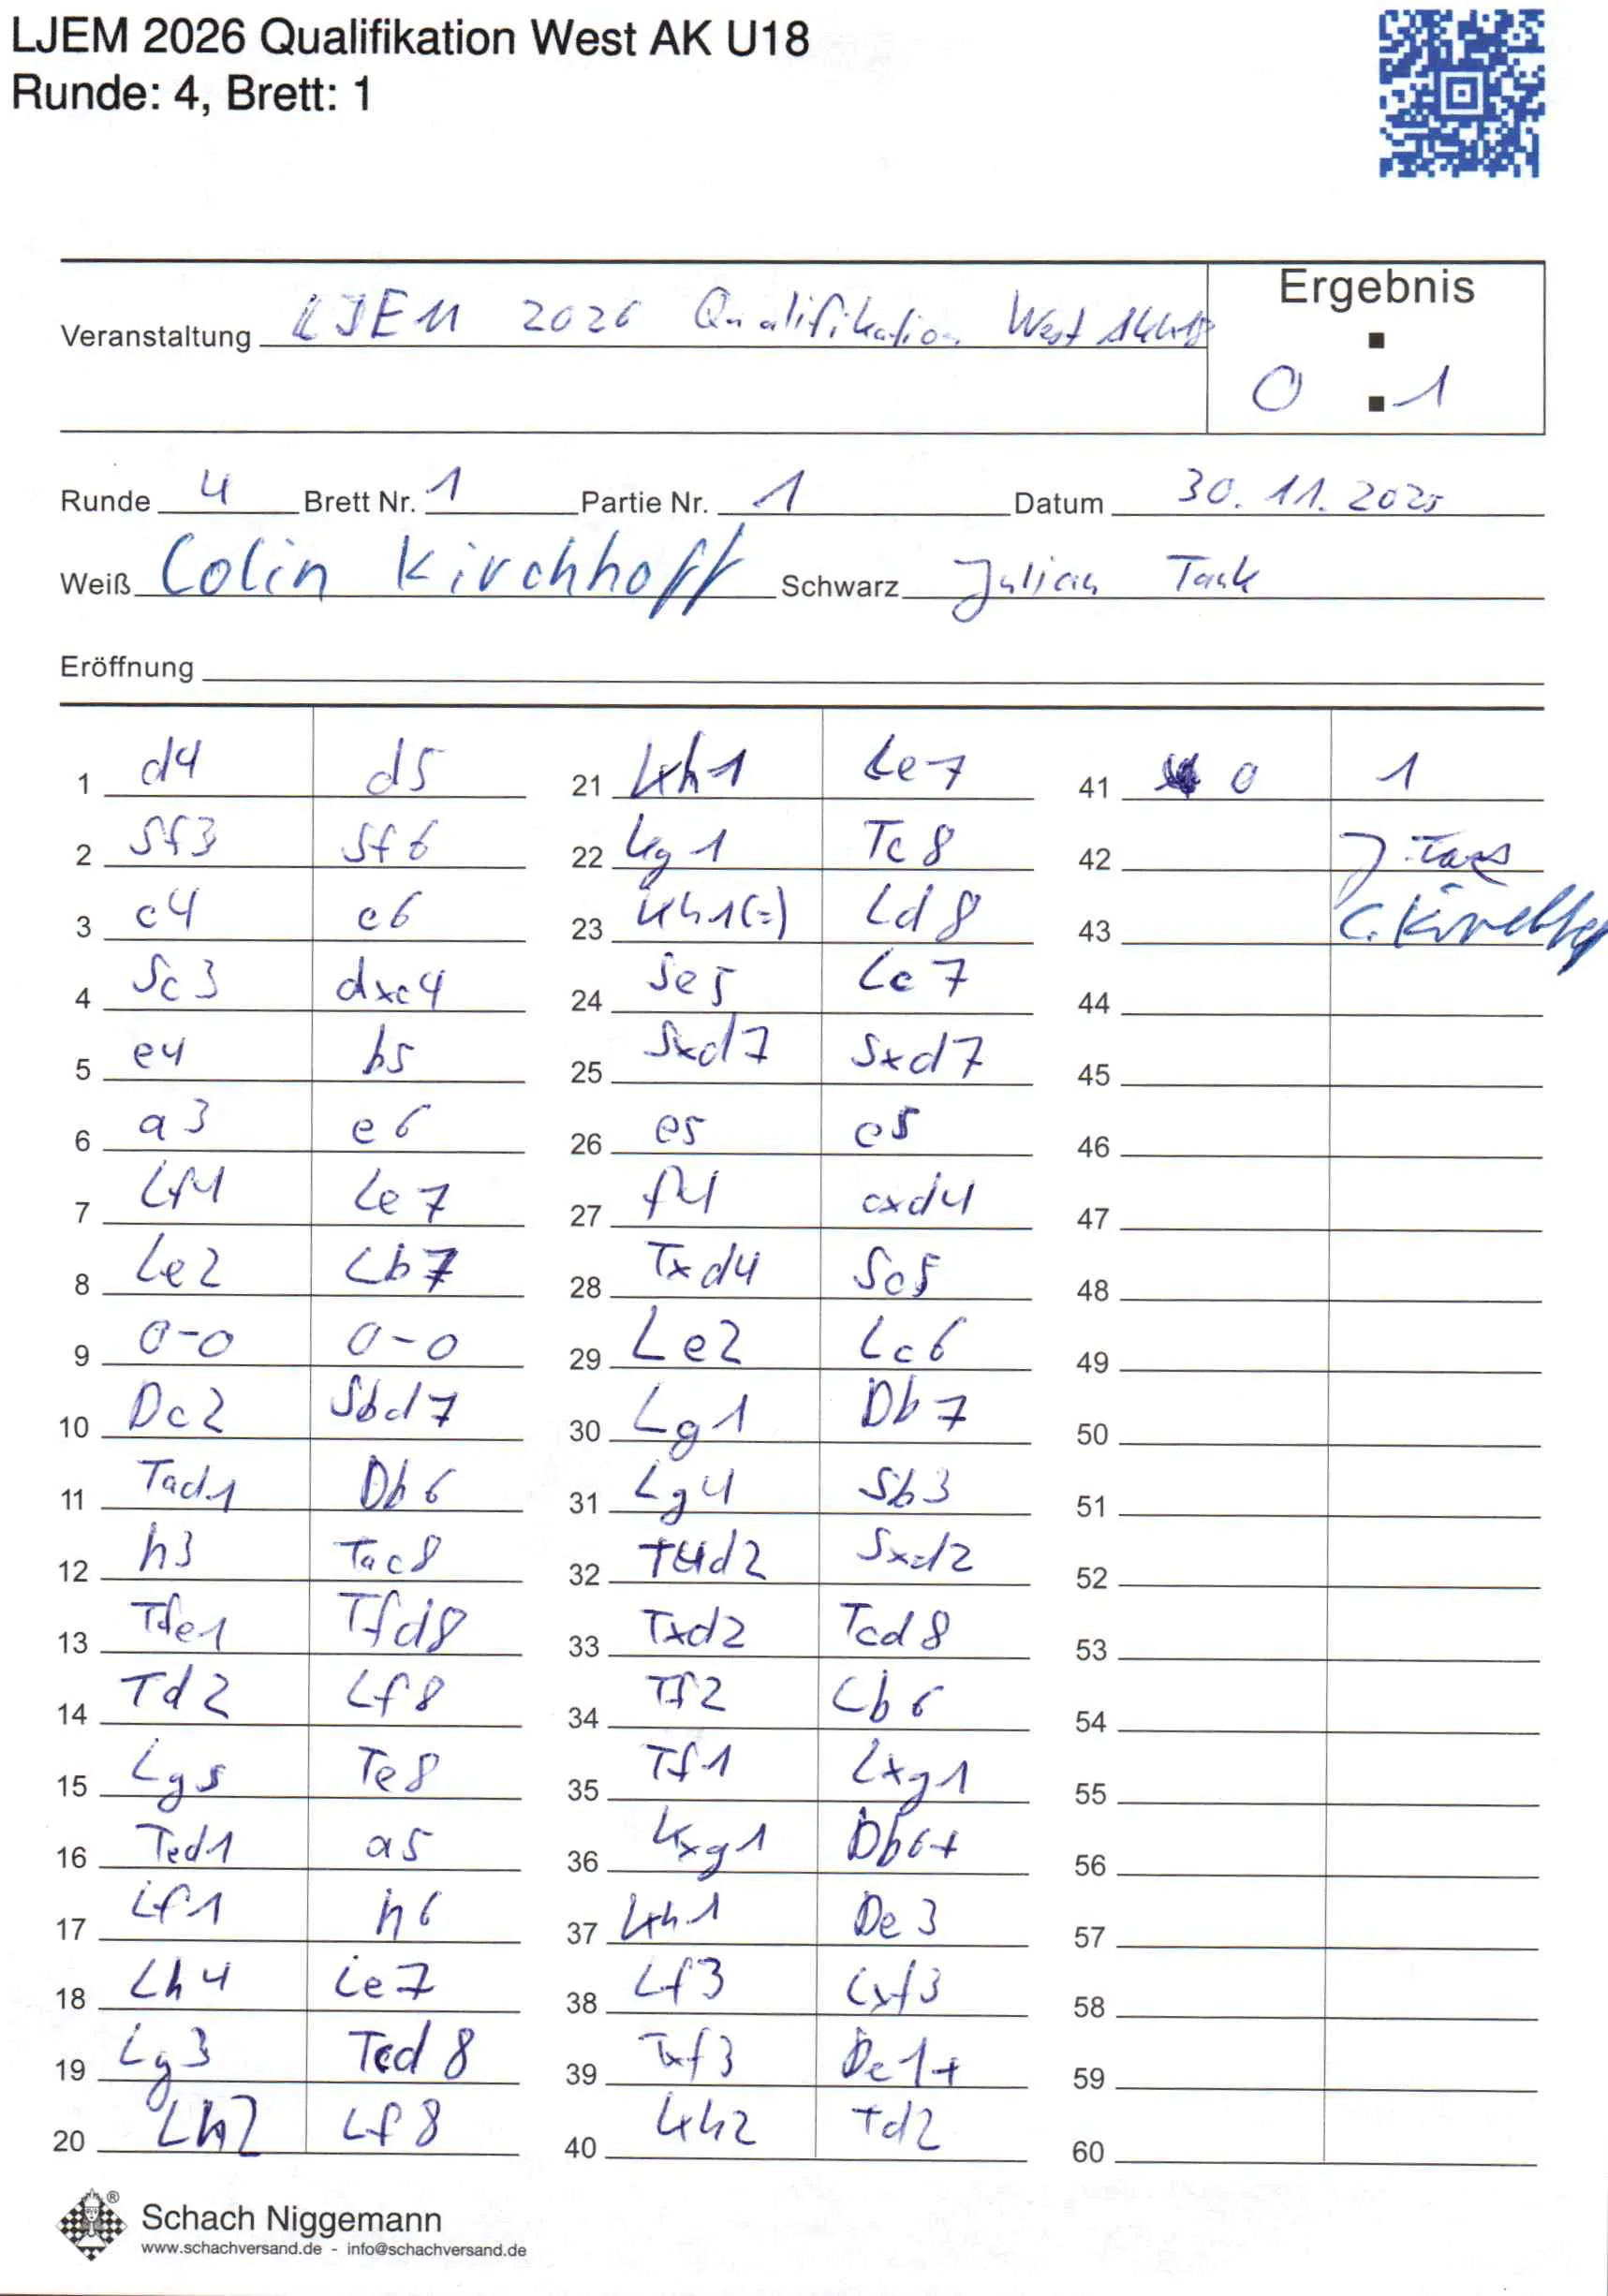 LJEM 2026 Qualifikation West AK U18
Runde: 4, Brett: 1
Veranstaltung LJEM 2026 Qualifikation West
Ergebnis
0 : 1
Runde 4 Brett Nr. 1 Partie Nr. 1 Datum 30.11.2025
Weiß Colin Kirchhoff Schwarz Julian Tank
Eröffnung
1 d4 d5
2 Sf3 Sf6
3 c4 c6
4 Sc3 dxc4
5 e4 b5
6 a3 e6
7 Lf4 Le7
8 Le2 Lb7
9 0-0 0-0
10 Dc2 Sbd7
11 Tad1 Db6
12 h3 Tac8
13 Tfe1 Tfd8
14 Td2 Lf8
15 Lg5 Te8
16 Ted1 a5
17 Lf1 h6
18 Lh4 Le7
19 Lg3 Tcd8
20 Lh2 Lf8
21 Kh1 Le7
22 Kg1 Tc8
23 Kh1(=) Ld8
24 Se5 Lc7
25 Sxd7 Sxd7
26 e5 c5
27 f4 cxd4
28 Txd4 Sc5
29 Le2 Lc6
30 Lg1 Db7
31 Lg4 Sb3
32 T4d2 Sxd2
33 Txd2 Tcd8
34 Tf2 Lb6
35 Tf1 Lxg1
36 Kxg1 Db6+
37 Kh1 De3
38 Lf3 Lxf3
39 Txf3 De1+
40 Kh2 Td2
41 0 1
42 J. Tank
43 C. Kirchhoff
44
45
46
47
48
49
50
51
52
53
54
55
56
57
58
59
60
Schach Niggemann
www.schachversand.de - info@schachversand.de